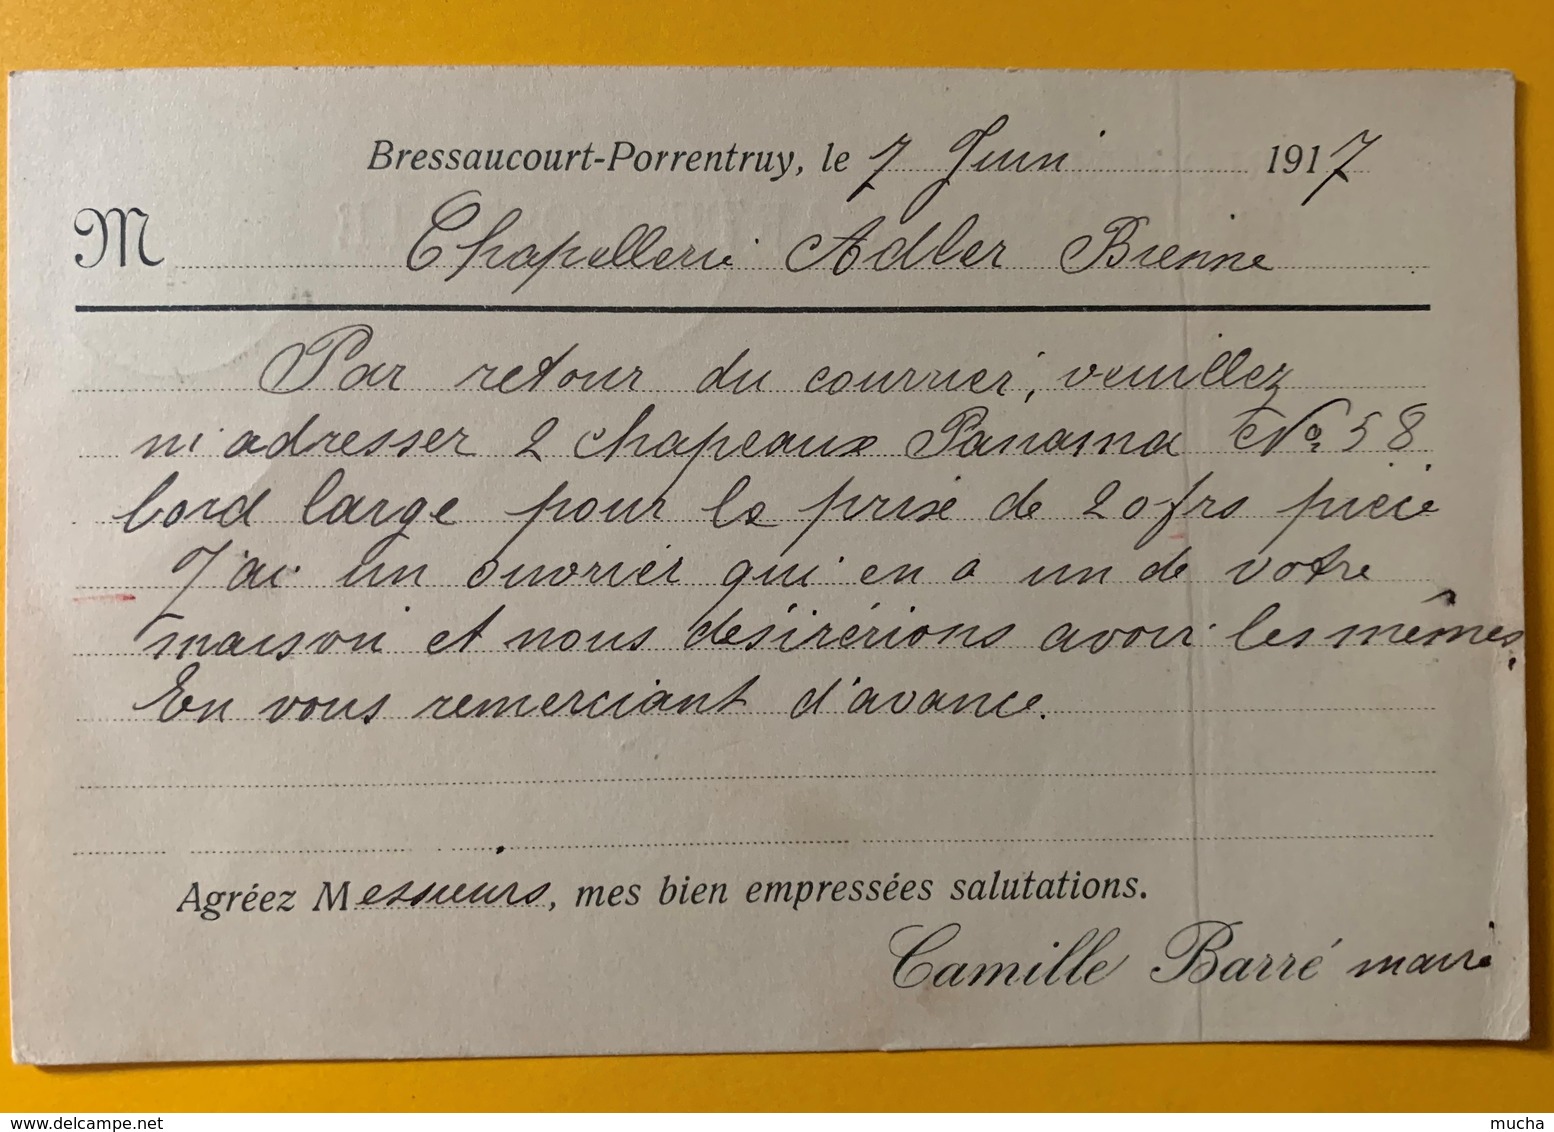 Bressaucourt-Porrentruy, le 7 Juin 1917
M Chapellerie Adler Bienne
Par retour du courrier, veuillez
m'adresser 2 chapeaux Panama No 58
bord large pour le prix de 20 frs pièce
J'ai un ouvrier qui en a un de votre
maison et nous désirérions avoir les mêmes.
En vous remerciant d'avance.
Agréez Messieurs, mes bien empressées salutations.
Camille Barré maire
www.delcampe.net
mucha